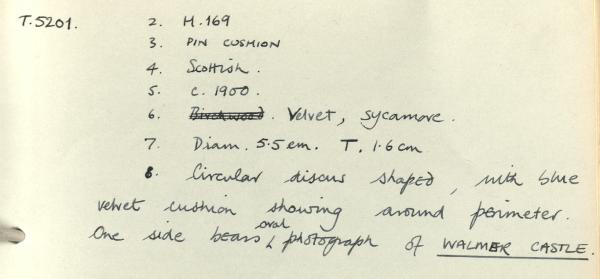 T.5201. 2. H.169
3. PIN CUSHION
4. Scottish.
5. c. 1900.
6. Birchwood. Velvet, sycamore.
7. Diam. 5.5 cm. T. 1.6 cm
8. Circular discus shaped, with blue
velvet cushion showing around perimeter.
One side bears oval photograph of WALMER CASTLE.